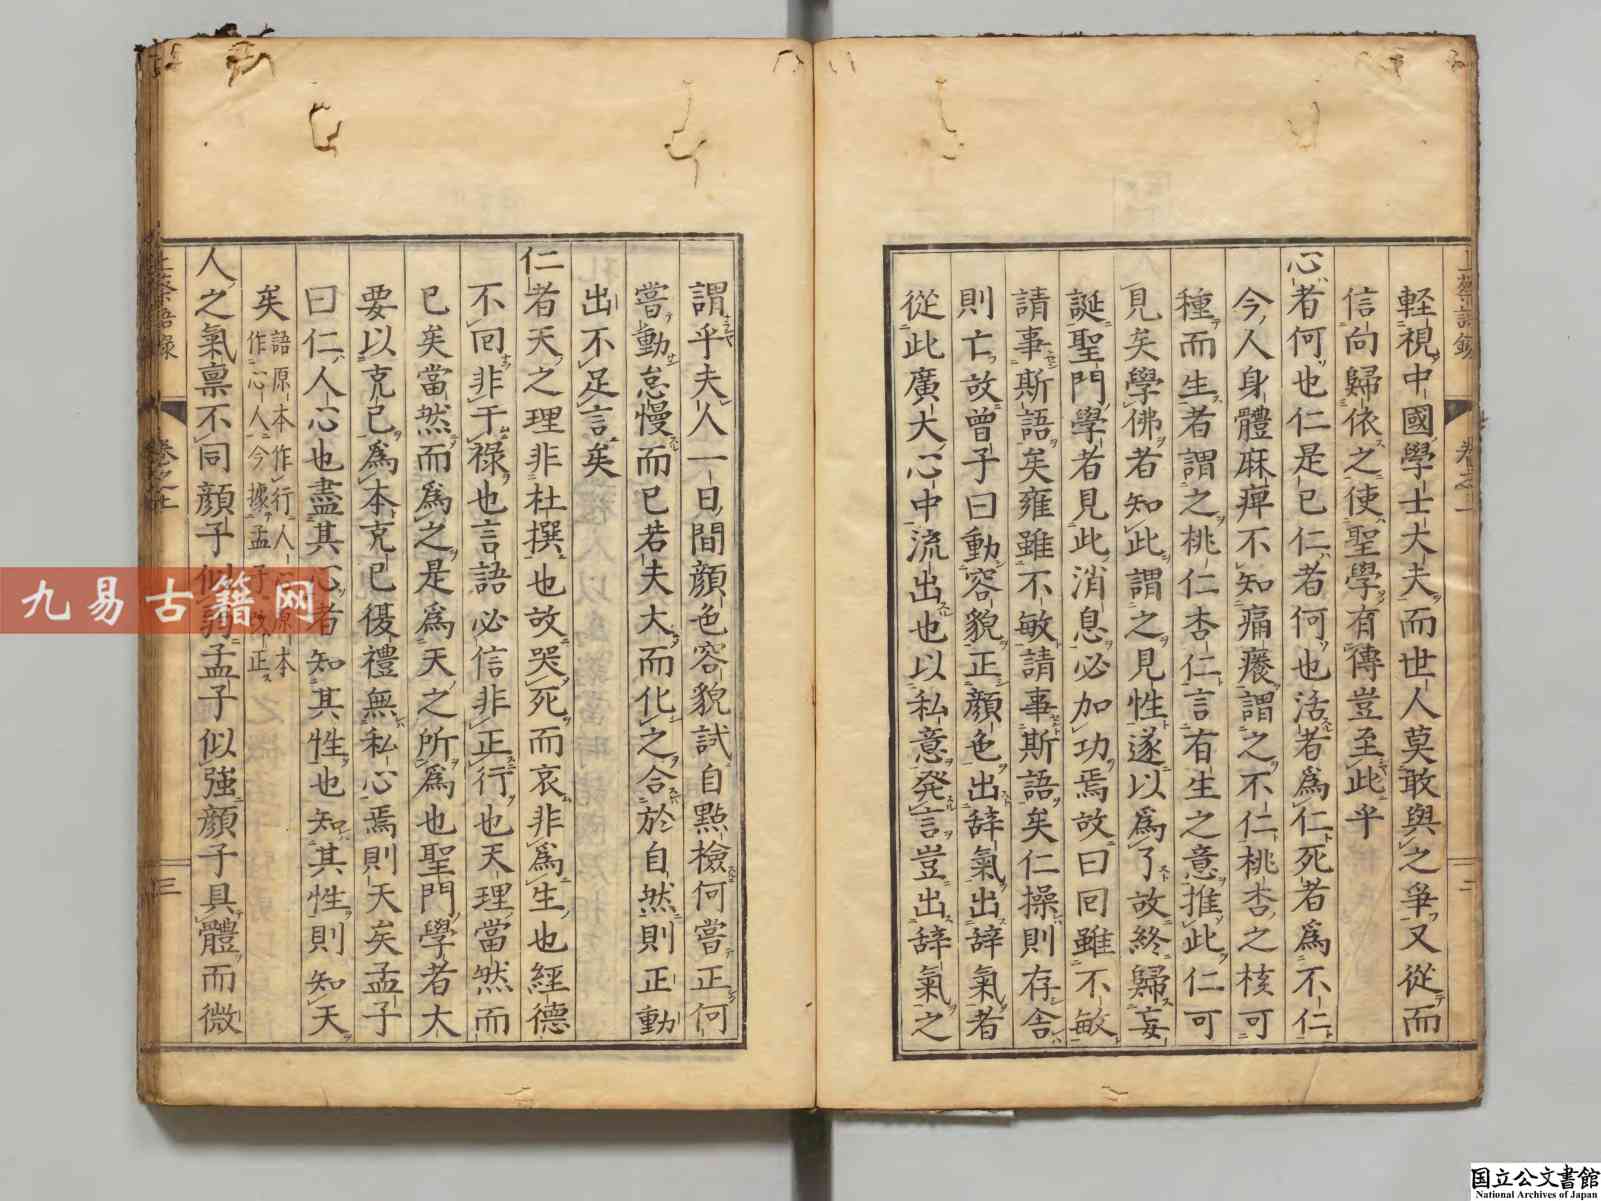 輕視中國學士大夫而世人莫敢與之爭又從而
信向歸依之使聖學有傳豈至此乎
心者何也仁是已仁者何也活者爲仁死者爲不仁
今人身體麻痺不知痛癢謂之不仁桃杏之核可
種而生者謂之桃仁杏仁言有生之意推此仁可
見矣學佛者知此謂之見性遂以爲了故終歸妄
誕聖門學者見此消息必加功焉故曰回雖不敏
請事斯語矣雍雖不敏請事斯語矣仁操則存舍
則亡故曾子曰動容貌正顏色出辭氣出辭氣者
從此廣大心中流出也以私意發言豈出辭氣之
謂乎夫人一日間顏色容貌試自點檢何嘗正何
嘗動怠慢而已若夫大而化之合於自然則正動
出不足言矣
仁者天之理非杜撰也故哭死而哀非爲生也經德
不回非干祿也言語必信非正行也天理當然而
已矣當然而爲之是爲天之所爲也聖門學者大
要以克己爲本克己復禮無私心焉則天矣孟子
曰仁人心也盡其心者知其性也知其性則知天
矣語原本作行人心原本
作心人今據孟子改正
人之氣稟不同顏子似弱孟子似強顏子具體而微
上蔡語錄
卷之上
三
九易古籍网
国立公文書館
National Archives of Japan